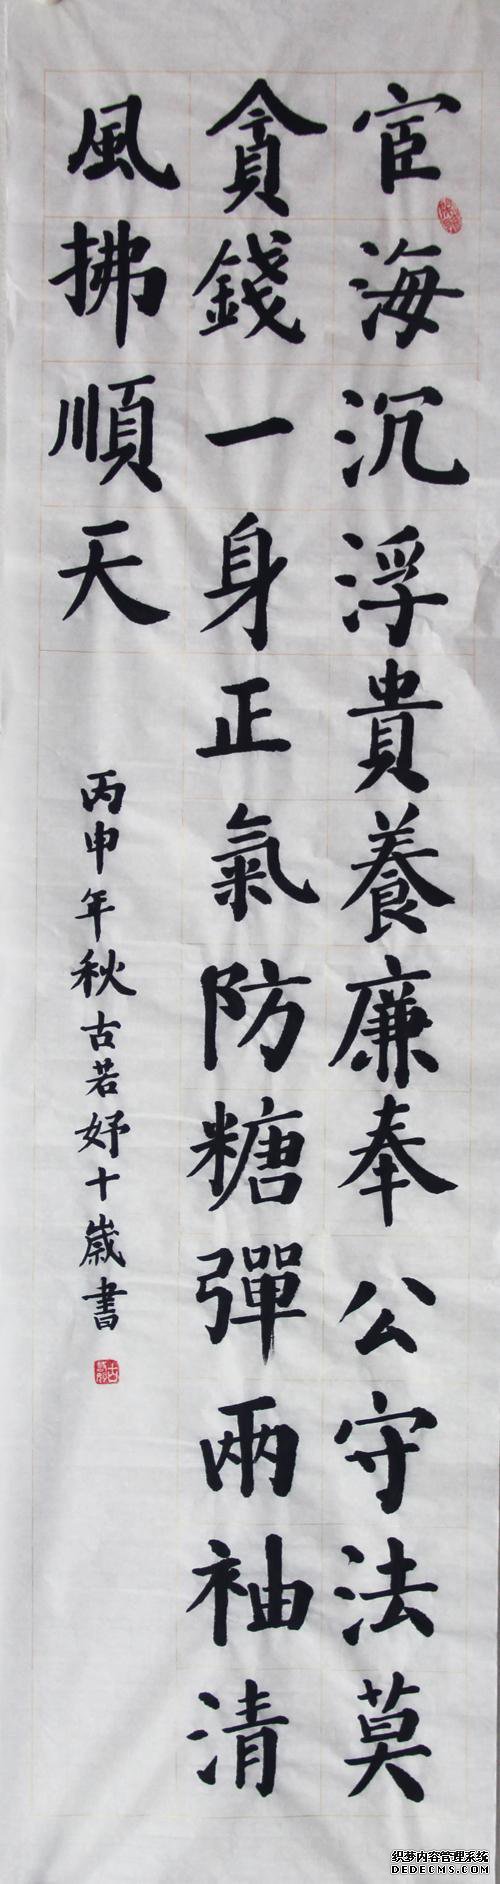 宦海沉浮貴養廉奉公守法莫
貪錢一身正氣防糖彈兩袖清
風拂順天
丙申年秋古若妤十歲書
织梦内容管理系统
DEDECMS.COM